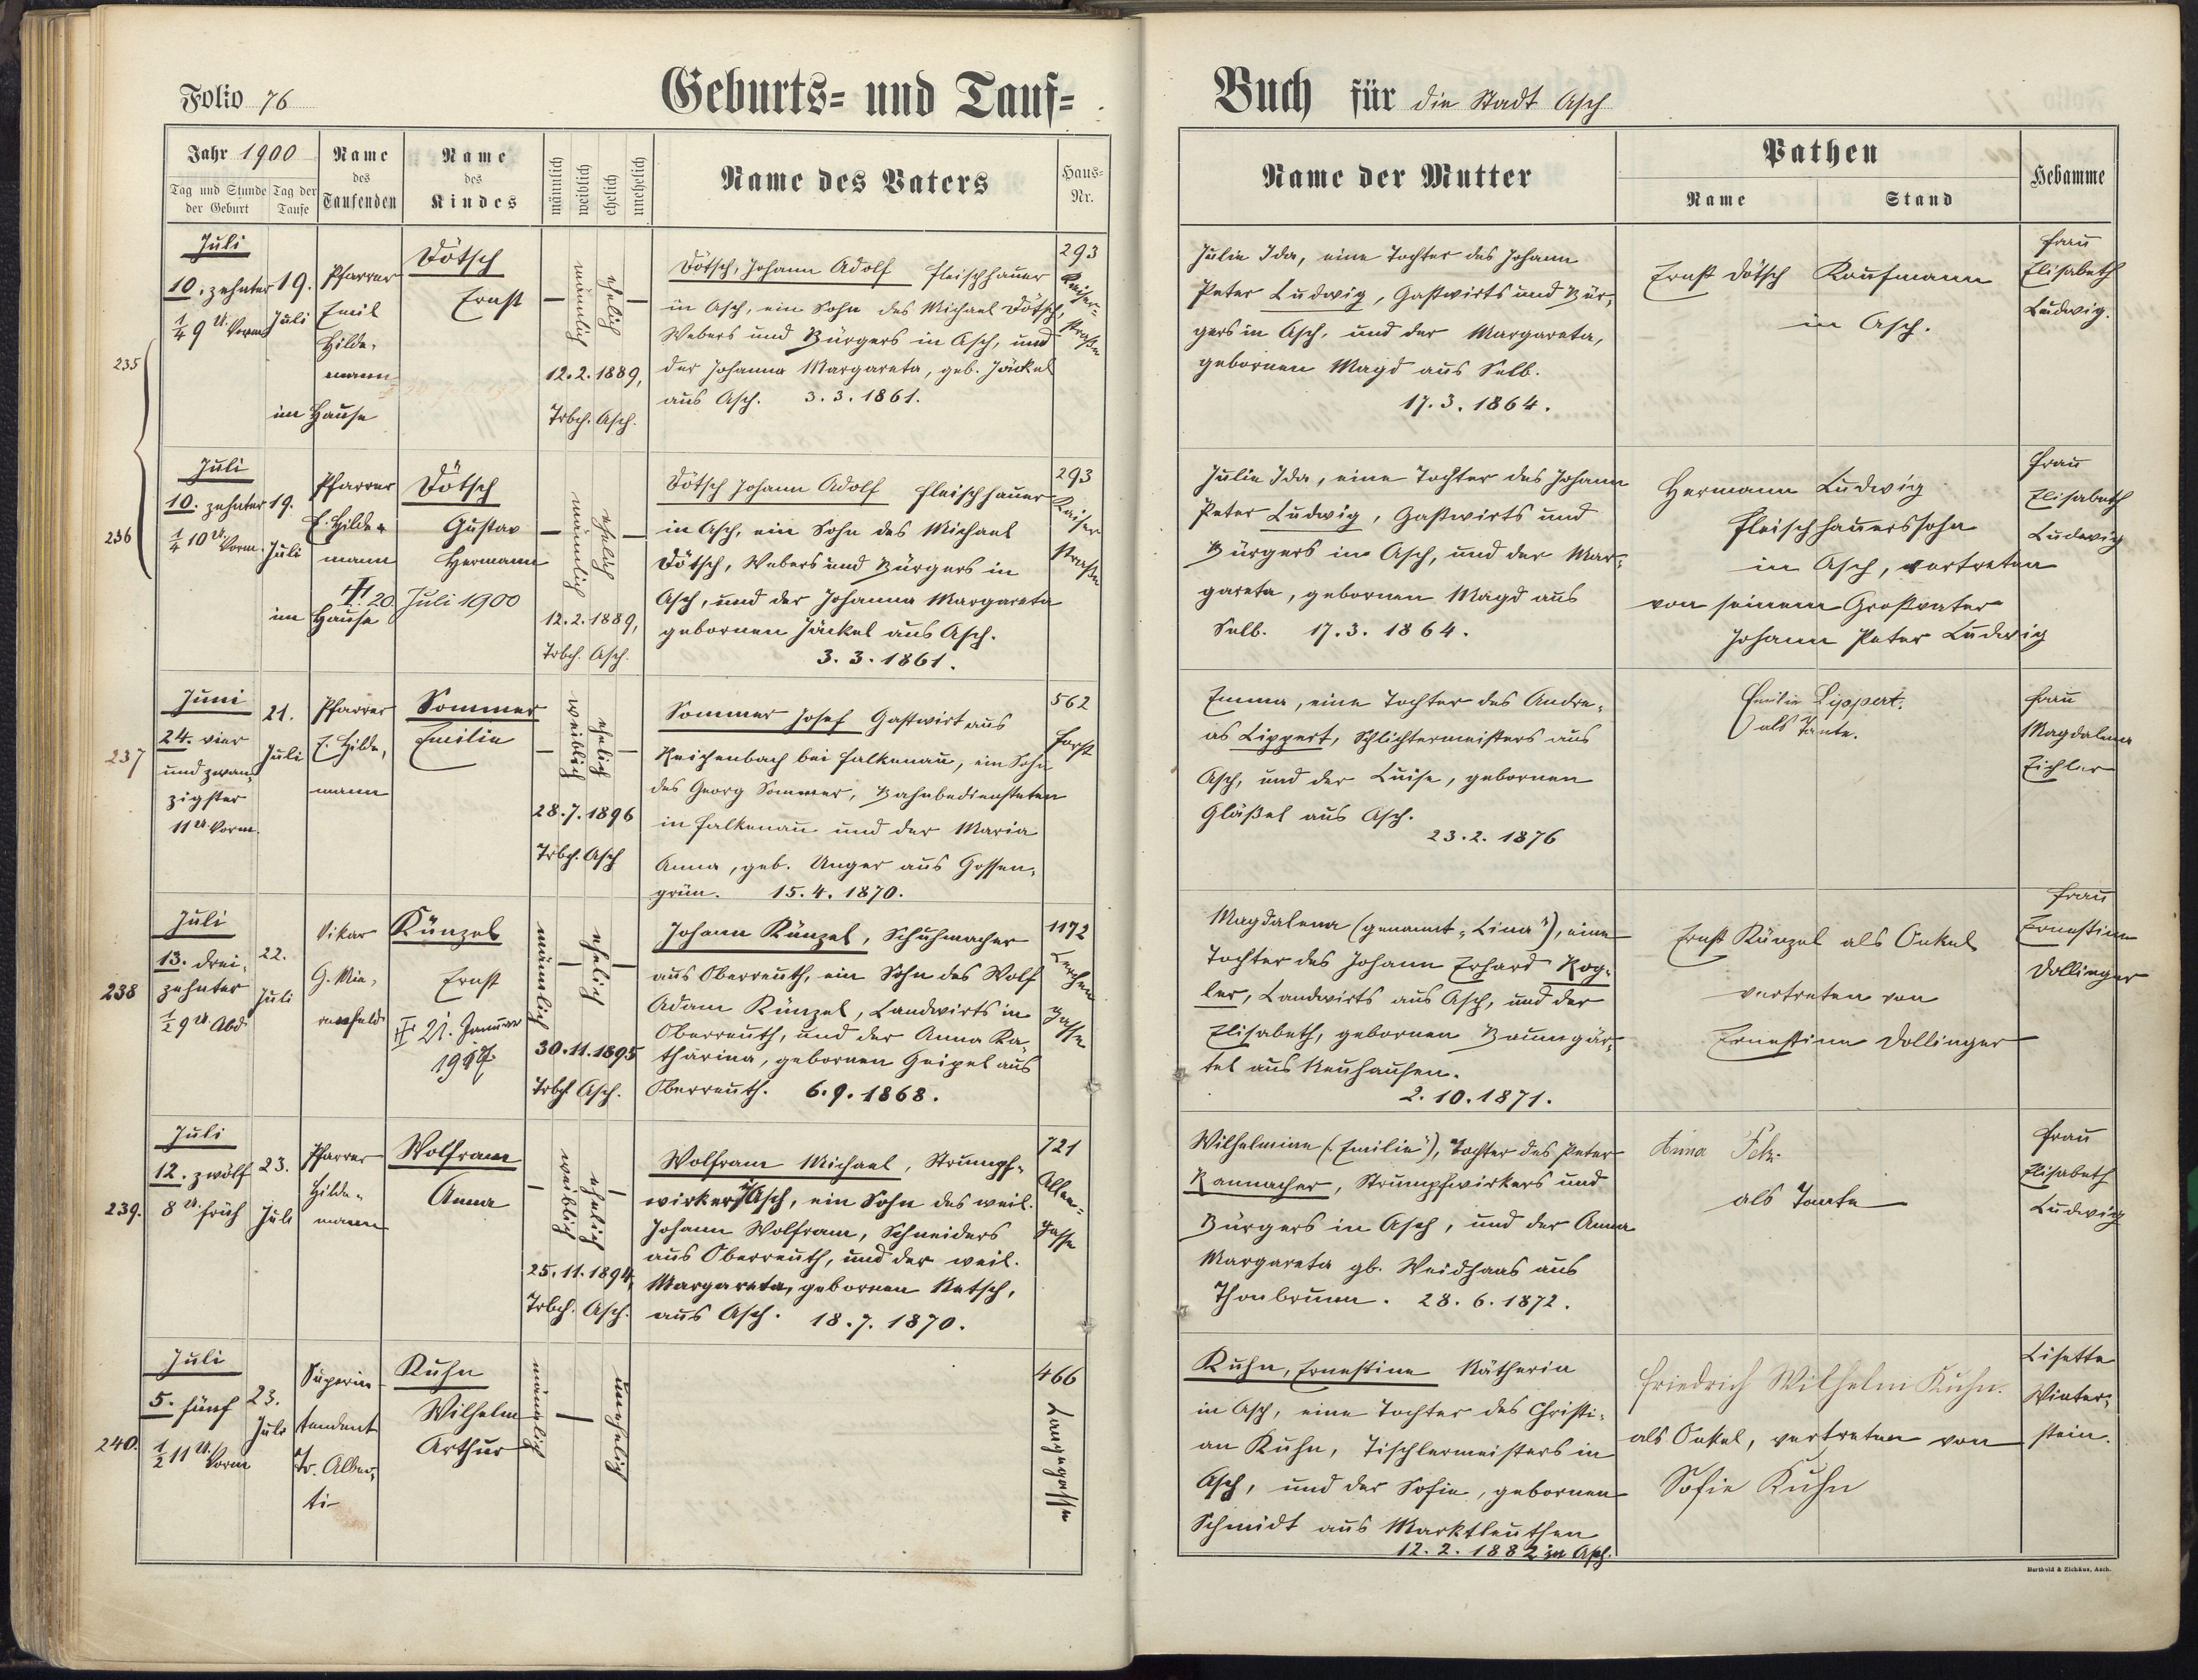 Folio 76
Geburts- und Tauf-
Buch für die Stadt Asch
Jahr 1900
Tag und Stunde der Geburt
Tag der Taufe
Name des Taufenden
Name des Kindes
männlich
weiblich
ehelich
unehelich
Name des Vaters
Haus-Nr.
Name der Mutter
Pathen
Name
Stand
Hebamme
235
Juli
10. zehnter
1/4 9 U. Vorm.
19.
Juli
Pfarrer
Emil
Hilde-
mann
im Hause
Dötsch
Ernst
männlich
ehelich
12.2.1889,
Trbch. Asch.
Dötsch, Johann Adolf Fleischhauer
in Asch, ein Sohn des Michael Dötsch,
Webers und Bürgers in Asch, und
der Johanna Margareta, geb. Jäckel
aus Asch. 3.3.1861.
293
Kaiser-
straße
Julie Ida, eine Tochter des Johann
Peter Ludwig, Gastwirts und Bür-
gers in Asch, und der Margareta,
gebornen Magd aus Selb.
17.3.1864.
Ernst Dötsch Kaufmann
in Asch.
Frau
Elisabeth
Ludwig.
236
Juli
10. zehnter
1/4 10 U. Vorm.
19.
Juli
Pfarrer
E. Hilde-
mann
im Hause
Dötsch
Gustav
Hermann
20. Juli 1900
männlich
ehelich
12.2.1889,
Trbch. Asch.
Dötsch Johann Adolf Fleischhauer
in Asch, ein Sohn des Michael
Dötsch, Webers und Bürgers in
Asch, und der Johanna Margareta
gebornen Jäckel aus Asch.
3.3.1861.
293
Kaiser
straße
Julie Ida, eine Tochter des Johann
Peter Ludwig, Gastwirts und
Bürgers in Asch, und der Mar-
gareta, gebornen Magd aus
Selb. 17.3.1864.
Hermann Ludwig
Fleischhauerssohn
in Asch, vertreten
von seinem Großvater
Johann Peter Ludwig
Frau
Elisabeth
Ludwig
237
Juni
24. vier
und zwan-
zigster
11 U. Vorm.
21.
Juli
Pfarrer
E. Hilde-
mann
Sommer
Emilie
weiblich
ehelich
28.7.1896
Trbch. Asch
Sommer Josef Gastwirt aus
Reichenbach bei Falkenau, ein Sohn
des Georg Sommer, Bahnbediensteten
in Falkenau und der Maria
Anna, geb. Unger aus Gossen-
grün. 15.4.1870.
562
Forst
Emma, eine Tochter des Andre-
as Lippert, Schlichtermeisters aus
Asch, und der Luise, gebornen
Gläßel aus Asch.
23.2.1876
Emilie Lippert.
als Tante.
Frau
Magdalena
Eichler
238
Juli
13. drei-
zehnter
1/2 9 U. Abd.
22.
Juli
Vikar
Künzel
Ernst
21. Januar
männlich
ehelich
30.11.1895
Trbch. Asch.
Johann Künzel, Schuhmacher
aus Oberreuth, ein Sohn des Wolf
Adam Künzel, Landwirts in
Oberreuth, und der Anna Ka-
tharina, gebornen Geipel aus
Oberreuth. 6.9.1868.
1172
Lerchen
gasse
Magdalena (genannt „Lina"), eine
Tochter des Johann Erhard Rog-
ler, Landwirts aus Asch, und der
Elisabeth, gebornen Baumgär-
tel aus Neuhausen.
2.10.1871.
Ernst Künzel als Onkel
vertreten von
Ernestine Dollinger
Frau
Ernestine
Dollinger
239.
Juli
12. zwölf
8 U. früh
23.
Juli
Pfarrer
Hilde-
mann
Wolfram
Anna
weiblich
ehelich
25.11.1894,
Trbch. Asch.
Wolfram Michael, Strumpf-
wirker in Asch, ein Sohn des weil.
Johann Wolfram, Schneiders
aus Oberreuth, und der weil.
Margareta, gebornen Ratsch,
aus Asch. 18.7.1870.
721
gasse
Wilhelmine („Emilie"), Tochter des Peter
Rannacher, Strumpfwirkers und
Bürgers in Asch, und der Anna
Margareta gb. Weidhaas aus
Thonbrunn. 28.6.1872.
Anna
als Tante
Frau
Elisabeth
Ludwig
240.
Juli
5. fünf
1/2 11 U. Vorm
23.
Juli
Superin-
tendent
Dr. Alber-
ti
Kuhn
Wilhelm
Arthur
männlich
unehelich
466
Langegasse
Kuhn, Ernestine Nätherin
in Asch, eine Tochter des Christi-
an Kuhn, Tischlermeisters in
Asch, und der Sofie, gebornen
Schmidt aus Marktleuthen
12.2.1882 in Asch.
Friedrich Wilhelm Kuhn.
als Onkel, vertreten von
Sofie Kuhn
Lisette
Winter-
stein.
Berthold & Zichäus, Asch.